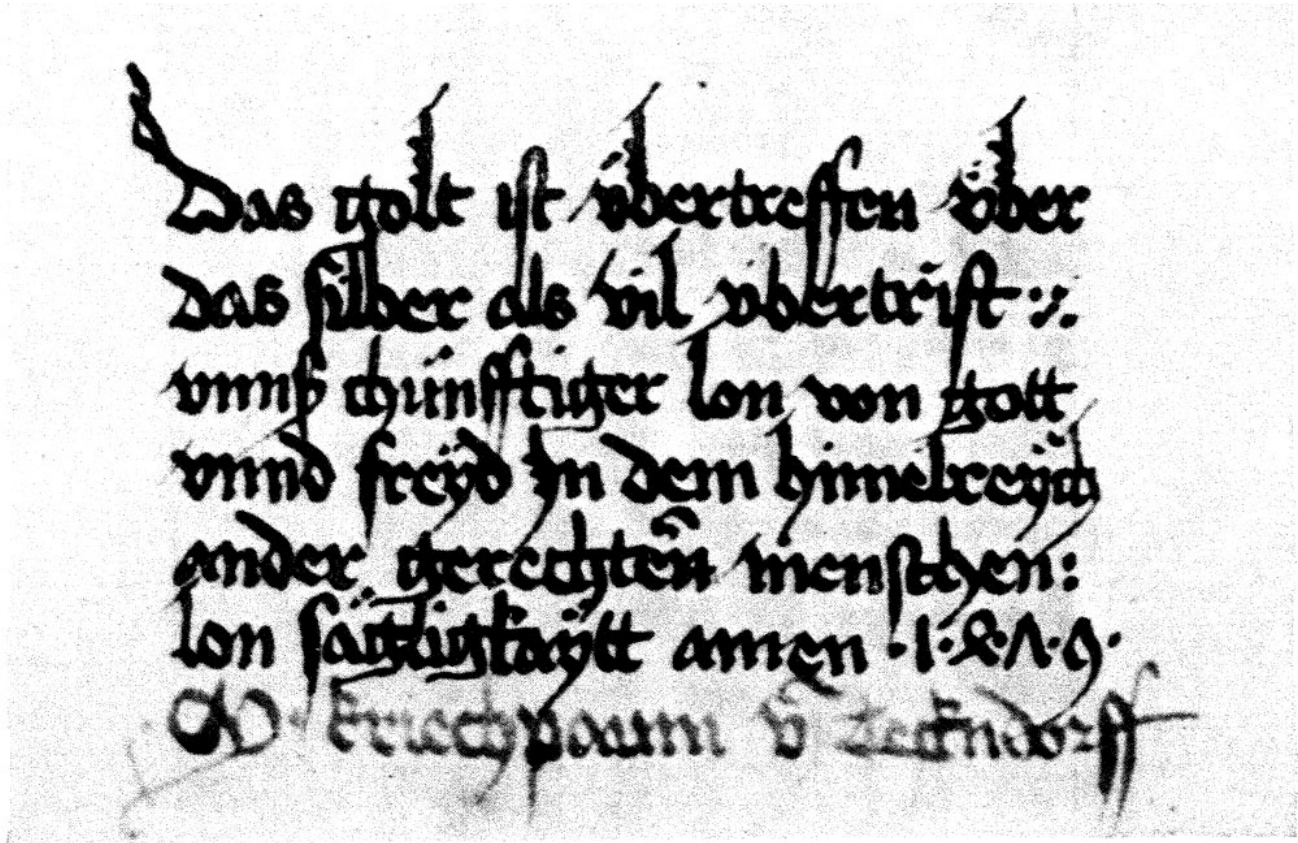 Das golt ist v́bertreffen v́ber
das silber als vil v́bertrist :/:
vnnß chúnfftiger lon von gott
vnnd freÿd Jn dem himelreÿch
ander gerechten̄ menschen :
lon säÿligkaÿtt amen · 1 · 4 · 7 · 9 ·
kriechpaum v̄